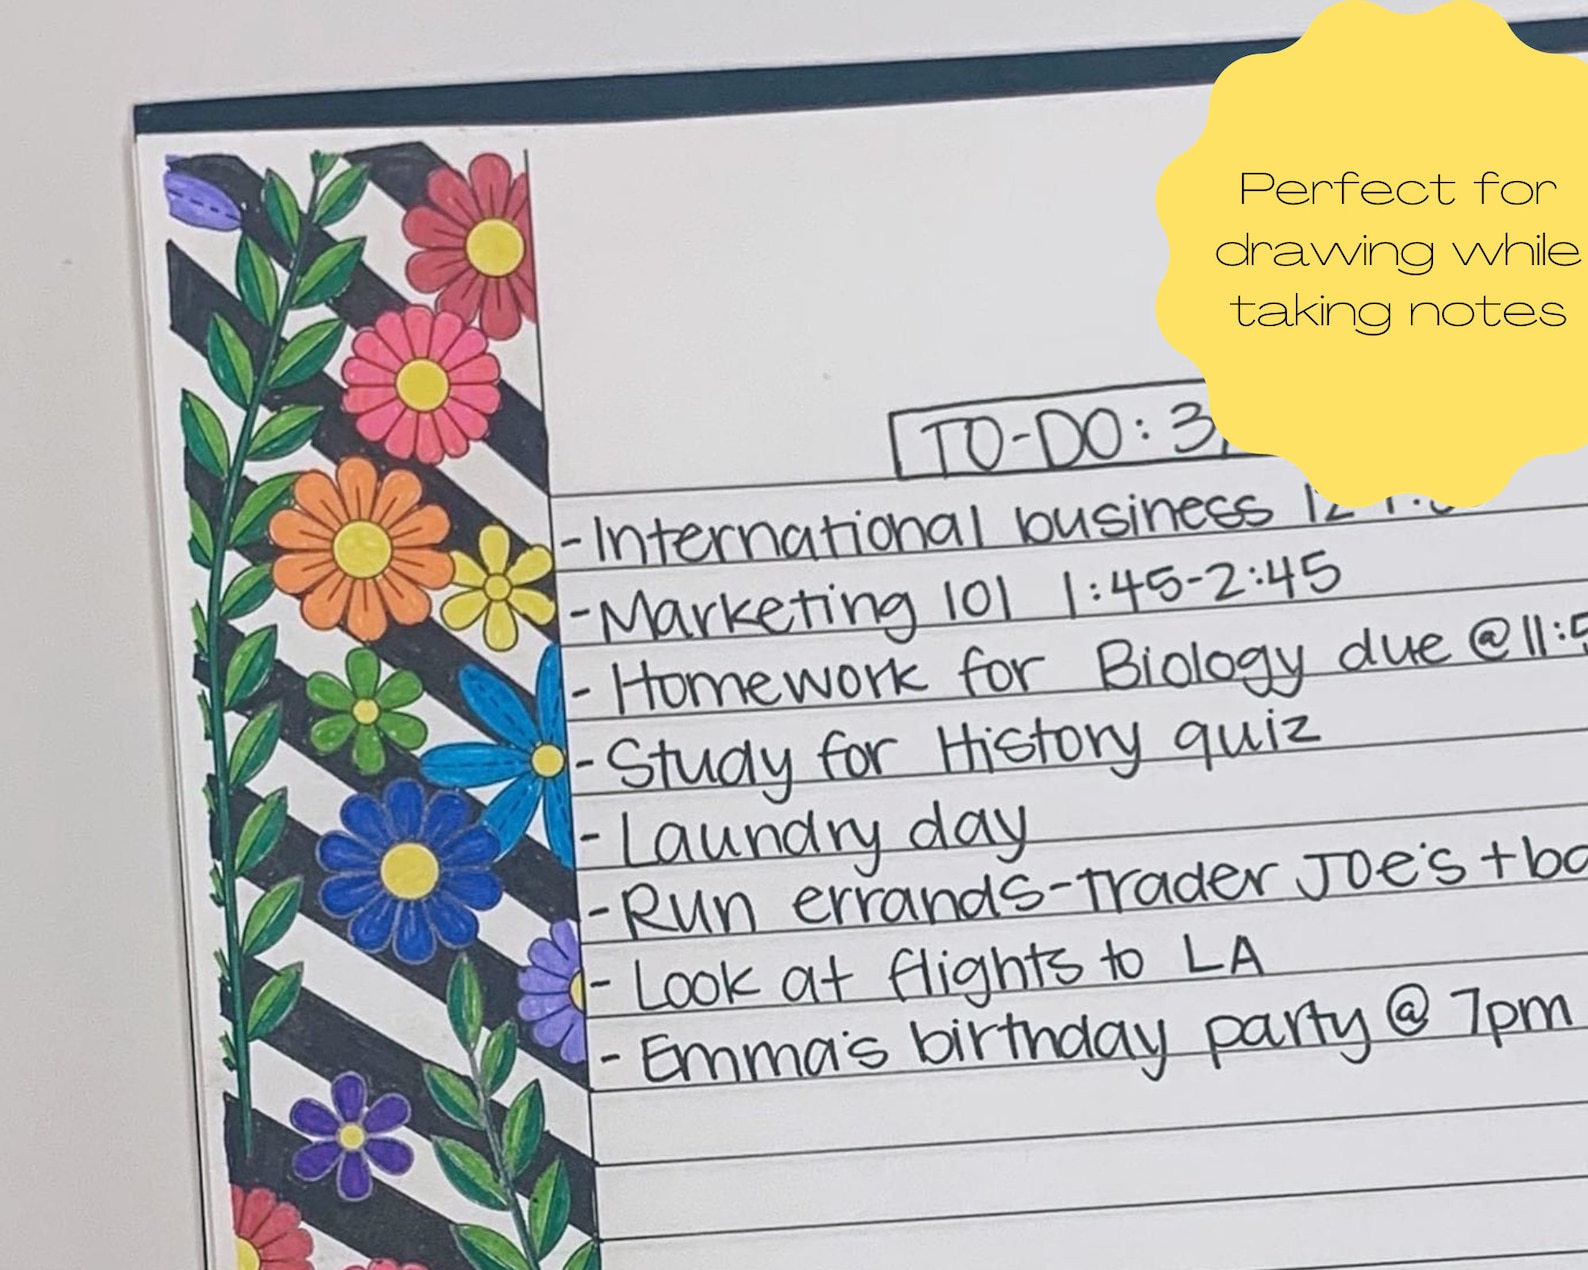 Perfect for
drawing while
taking notes
TO-DO: 3/
- International business
- Marketing 101 1:45-2:45
- Homework for Biology due @ 11:5
- Study for History quiz
- Laundry day
- Run errands - Trader Joe's +
- Look at flights to LA
- Emma's birthday party @ 7pm